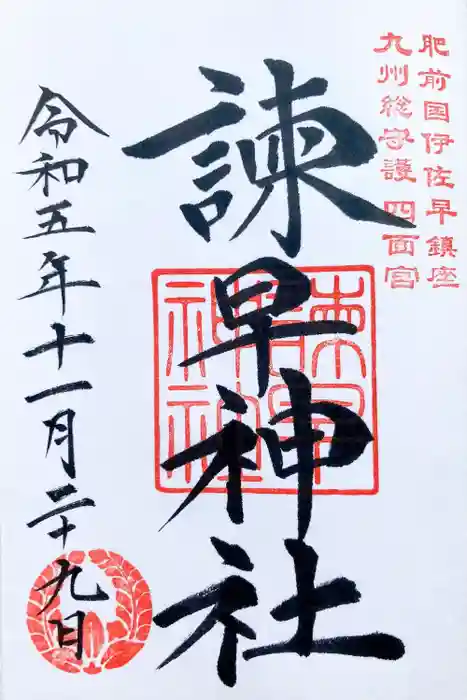 肥前国伊佐早鎮座
九州総守護 四面宮
諫早神社
諫早神社
令和五年十一月二十九日